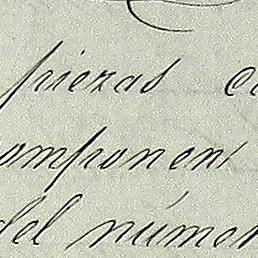 piezas c
omponen
del númer